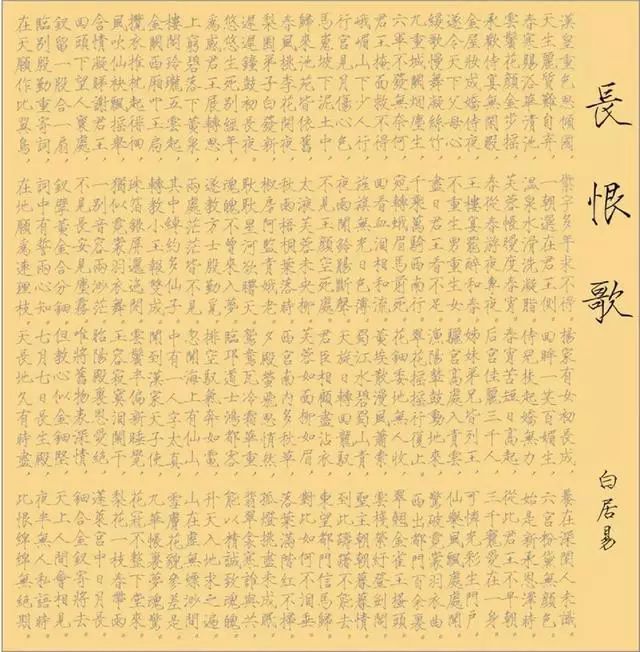 長恨歌
白居易
漢皇重色思傾國，御宇多年求不得。楊家有女初長成，養在深閨人未識。
天生麗質難自棄，一朝選在君王側。回眸一笑百媚生，六宮粉黛無顏色。
春寒賜浴華清池，溫泉水滑洗凝脂。侍兒扶起嬌無力，始是新承恩澤時。
雲鬢花顏金步搖，芙蓉帳暖度春宵。春宵苦短日高起，從此君王不早朝。
承歡侍宴無閒暇，春從春游夜專夜。后宮佳麗三千人，三千寵愛在一身。
金屋妝成嬌侍夜，玉樓宴罷醉和春。姊妹弟兄皆列土，可憐光彩生門戶。
遂令天下父母心，不重生男重生女。驪宮高處入青雲，仙樂風飄處處聞。
緩歌慢舞凝絲竹，盡日君王看不足。漁陽鼙鼓動地來，驚破霓裳羽衣曲。
九重城闕煙塵生，千乘萬騎西南行。翠華搖搖行復止，西出都門百余里。
六軍不發無奈何，宛轉蛾眉馬前死。花鈿委地無人收，翠翹金雀玉搔頭。
君王掩面救不得，回看血淚相和流。黃埃散漫風蕭索，雲棧縈紆登劍閣。
峨嵋山下少人行，旌旗無光日色薄。蜀江水碧蜀山青，聖主朝朝暮暮情。
行宮見月傷心色，夜雨聞鈴腸斷聲。天旋日轉回龍馭，到此躊躇不能去。
馬嵬坡下泥土中，不見玉顏空死處。君臣相顧盡沾衣，東望都門信馬歸。
歸來池苑皆依舊，太液芙蓉未央柳。芙蓉如面柳如眉，對此如何不淚垂。
春風桃李花開夜，秋雨梧桐葉落時。西宮南內多秋草，落葉滿階紅不掃。
梨園弟子白髮新，椒房阿監青娥老。夕殿螢飛思悄然，孤燈挑盡未成眠。
遲遲鐘鼓初長夜，耿耿星河欲曙天。鴛鴦瓦冷霜華重，翡翠衾寒誰與共。
悠悠生死別經年，魂魄不曾來入夢。臨邛道士鴻都客，能以精誠致魂魄。
為感君王展轉思，遂教方士殷勤覓。排空馭氣奔如電，升天入地求之遍。
上窮碧落下黃泉，兩處茫茫皆不見。忽聞海上有仙山，山在虛無縹緲間。
樓閣玲瓏五雲起，其中綽約多仙子。中有一人字太真，雪膚花貌參差是。
金闕西廂叩玉扃，轉教小玉報雙成。聞到漢家天子使，九華帳裏夢魂驚。
攬衣推枕起徘徊，珠箔銀屏邐迤開。雲鬢半偏新睡覺，花冠不整下堂來。
風吹仙袂飄搖舉，猶似霓裳羽衣舞。玉容寂寞淚闌干，梨花一枝春帶雨。
含情凝睇謝君王，一別音容兩渺茫。昭陽殿裏恩愛絕，蓬萊宮中日月長。
回頭下望人寰處，不見長安見塵霧。唯將舊物表深情，鈿合金釵寄將去。
釵留一股合一扇，釵擘黃金合分鈿。但教心似金鈿堅，天上人間會相見。
臨別殷勤重寄詞，詞中有誓兩心知。七月七日長生殿，夜半無人私語時。
在天願作比翼鳥，在地願為連理枝。天長地久有時盡，此恨綿綿無絕期。